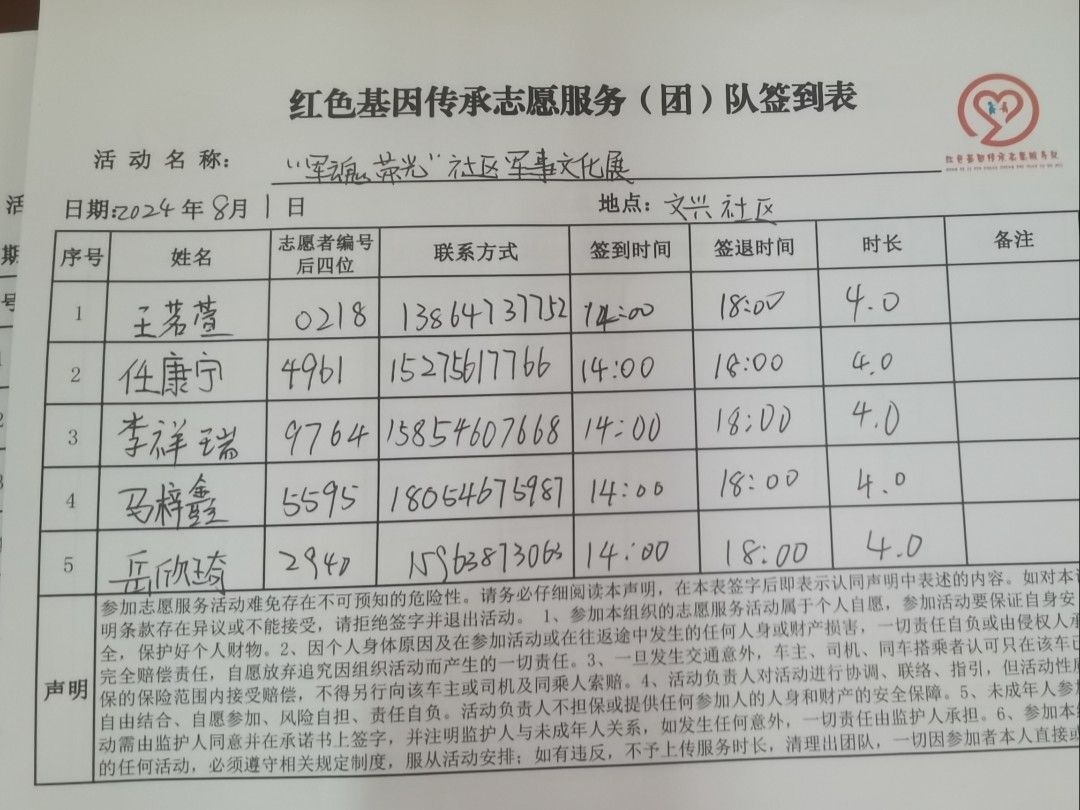 红色基因传承志愿服务（团）队签到表
红色基因传承志愿服务队
活动名称：“军魂荣光”社区军事文化展
日期：2024年8月1日 地点：文兴社区
序号 姓名 志愿者编号后四位 联系方式 签到时间 签退时间 时长 备注
1 王茗萱 0218 13864737752 14:00 18:00 4.0
2 任康宁 4961 15275617766 14:00 18:00 4.0
3 李祥瑞 9764 15854607668 14:00 18:00 4.0
4 马梓鑫 5595 18054675987 14:00 18:00 4.0
5 岳欣琦 2940 15963873063 14:00 18:00 4.0
声明
参加志愿服务活动难免存在不可预知的危险性。请务必仔细阅读本声明，在本表签字后即表示认同声明中表述的内容。如对本
明条款存在异议或不能接受，请拒绝签字并退出活动。 1、参加本组织的志愿服务活动属于个人自愿，参加活动要保证自身安
全，保护好个人财物。2、因个人身体原因及在参加活动或在往返途中发生的任何人身或财产损害，一切责任自负或由侵权人承
完全赔偿责任，自愿放弃追究因组织活动而产生的一切责任。3、一旦发生交通意外，车主、司机、同车搭乘者认可只在该车已
保的保险范围内接受赔偿，不得另行向该车主或司机及同乘人索赔。4、活动负责人对活动进行协调、联络、指引，但活动性质
自由结合、自愿参加、风险自担、责任自负。活动负责人不担保或提供任何参加人的人身和财产的安全保障。5、未成年人参
动需由监护人同意并在承诺书上签字，并注明监护人与未成年人关系，如发生任何意外，一切责任由监护人承担。6、参加本
的任何活动，必须遵守相关规定制度，服从活动安排；如有违反，不予上传服务时长，清理出团队，一切因参加者本人直接或